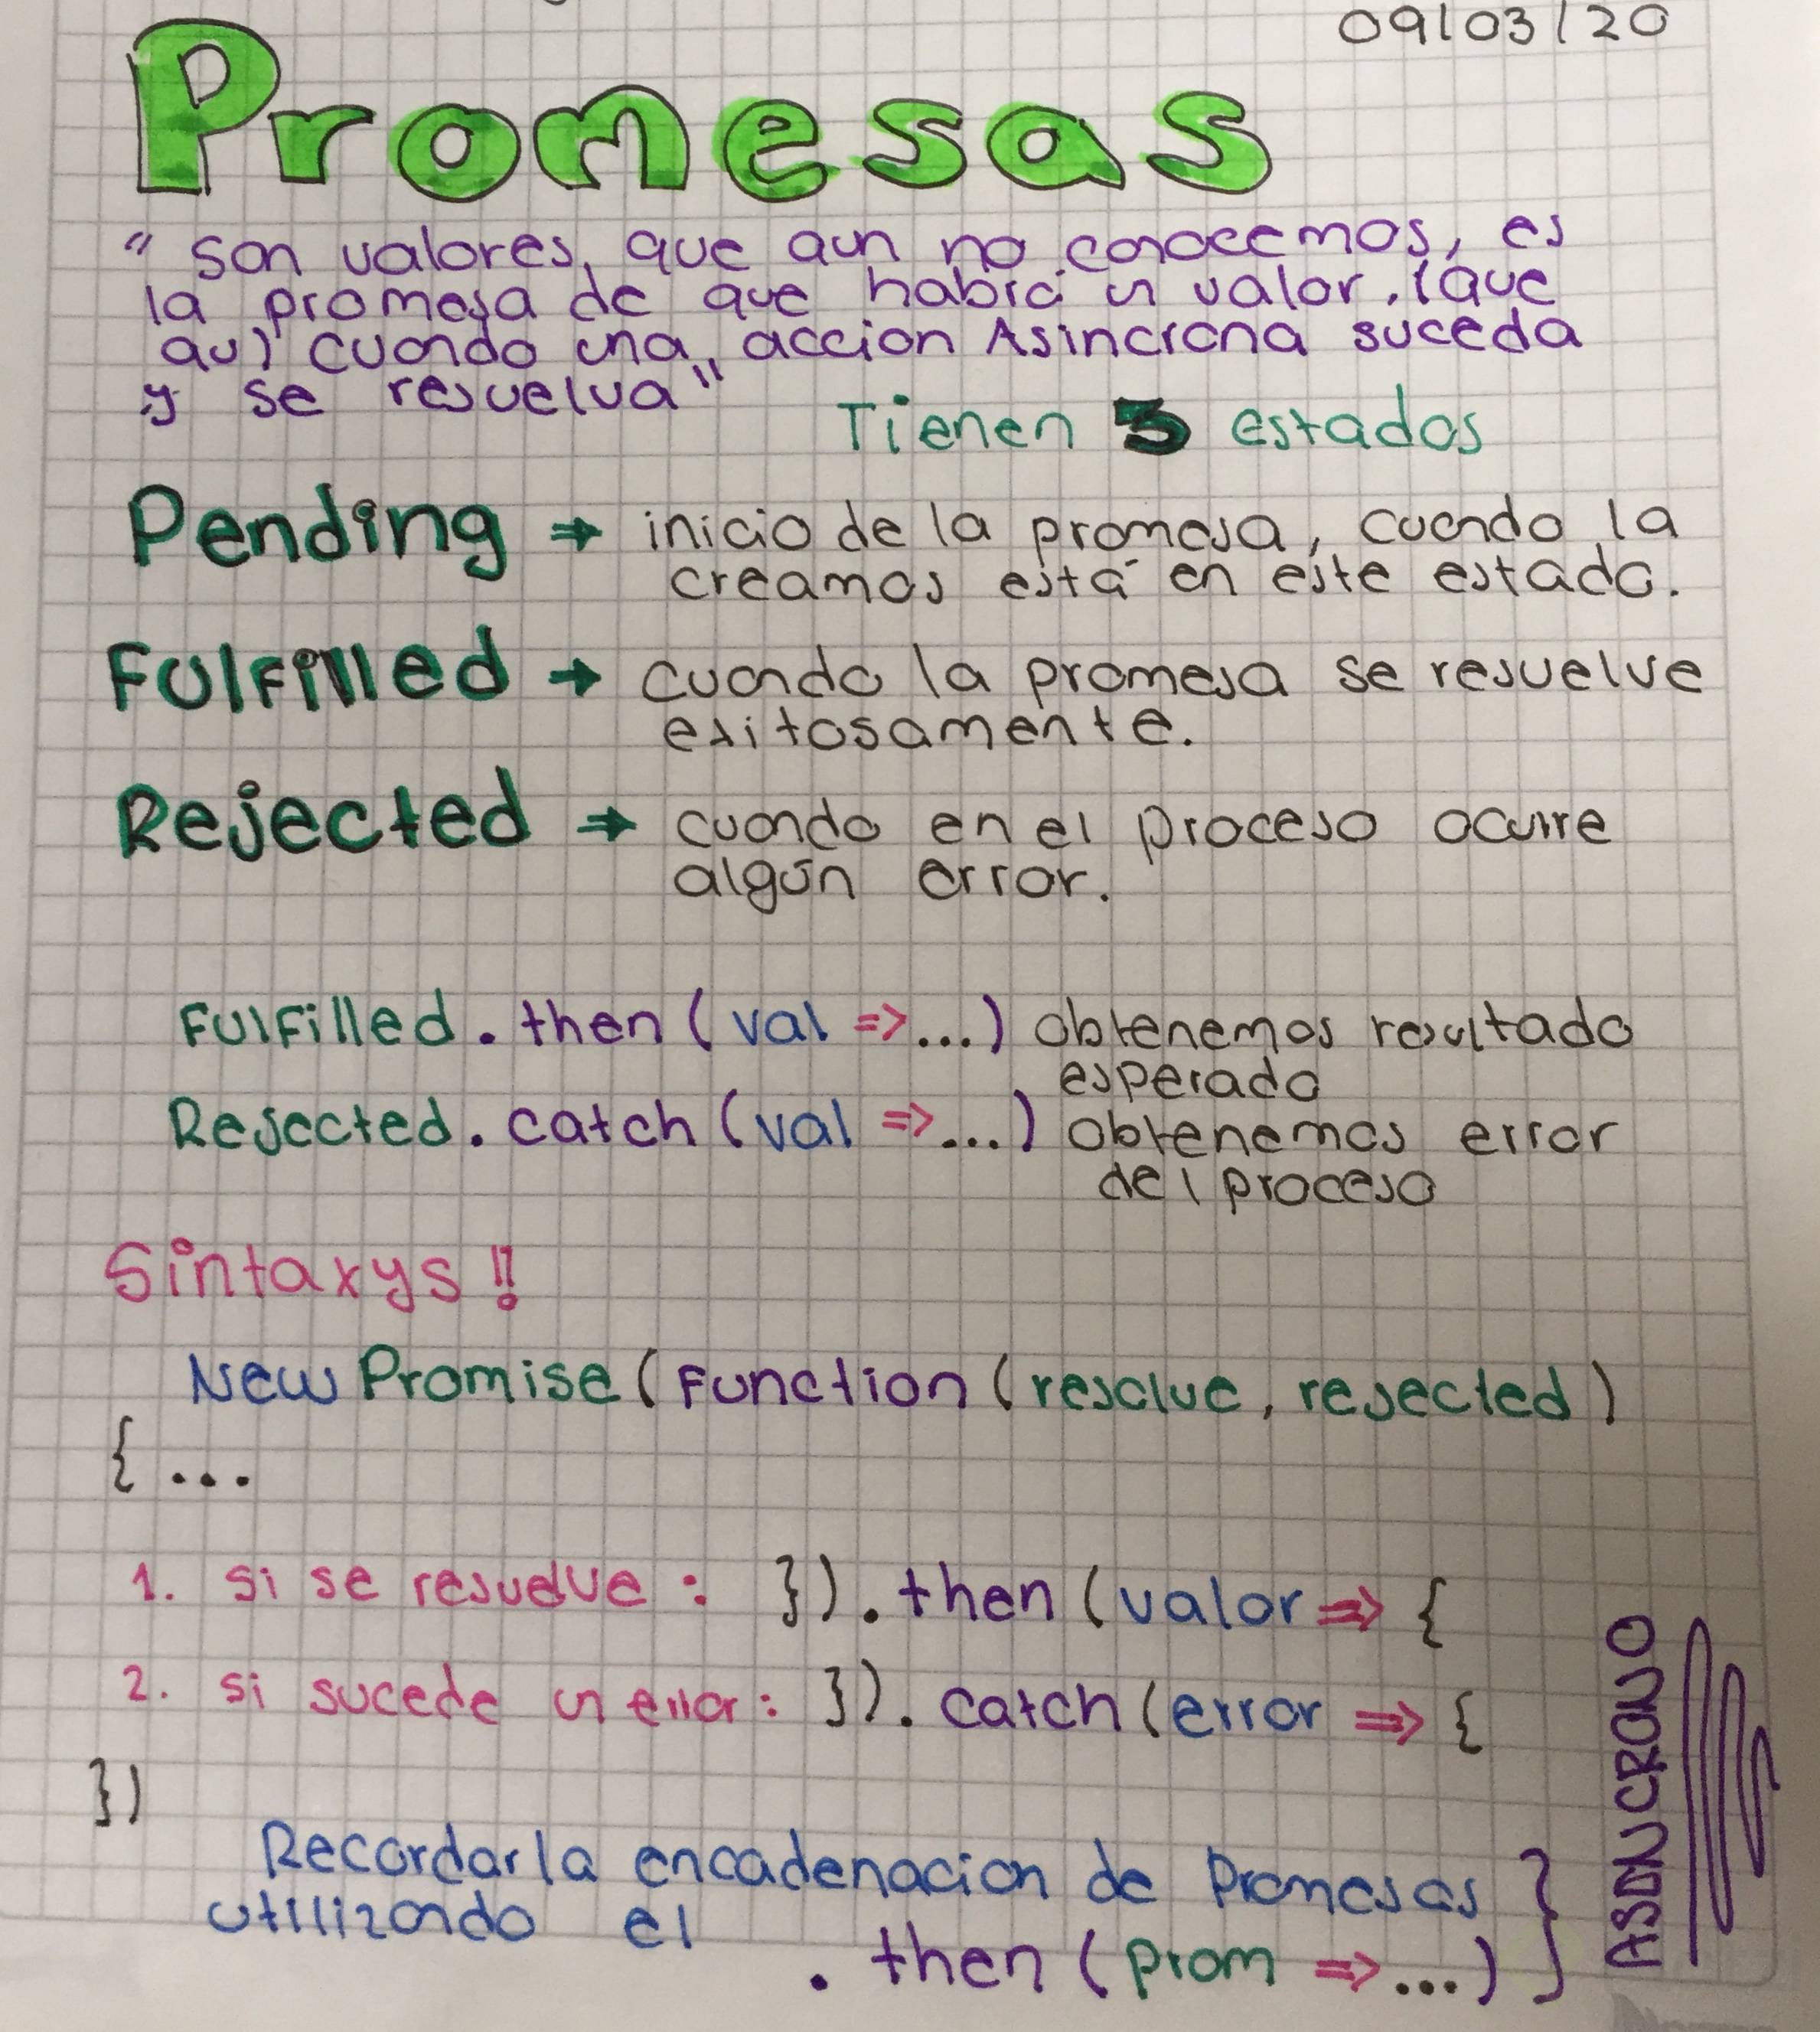 09/03/20
Promesas
" son valores, que aun no conocemos, es
la promesa de que habrá un valor. (que
aun) cuando una accion Asincrona suceda
y se resuelva"
Tienen 3 estados
Pending → inicio de la promesa, cuando la
creamos está en este estado.
Fulfilled → cuando la promesa se resuelve
exitosamente.
Rejected → cuando en el proceso ocurre
algún error.
Fulfilled.then(val =>...) obtenemos resultado
esperado
Rejected.catch(val =>...) obtenemos error
del proceso
Sintaxys!!
New Promise(Function(resolve, rejected)
{...
1. si se resuelve: }).then(valor => {
2. si sucede un error: }).catch(error => {
})
Recordar la encadenacion de Promesas }
utilizando el
.then(prom =>...)
ASONCRONO